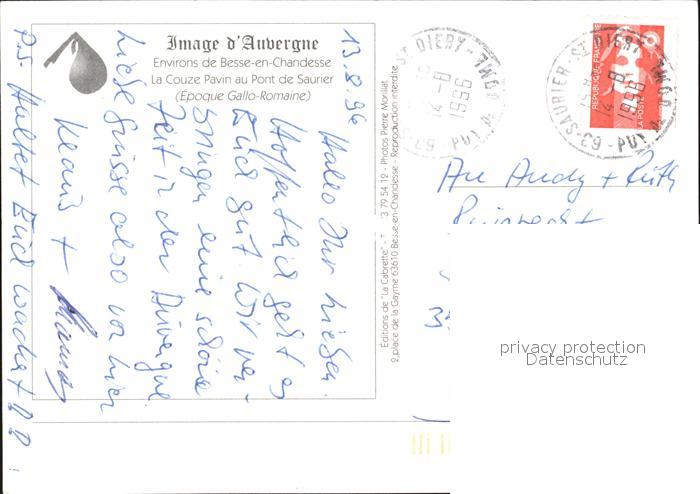 Image d'Auvergne
Environs de Besse-en-Chandesse
La Couze Pavin au Pont de Saurier
(Époque Gallo-Romaine)
13.8.96
Hallo Ihr Lieben.
Hoffentlich geht es
Euch gut. Wir ver-
bringen eine schöne
Zeit in der Auvergne.
Liebe Grüsse also von hier
Klaus +
P.S. Haltet Euch wacker!
Éditions de "La Cabrette" - 73 79 54 12 - Photos Pierre Morillat
2, place de la Gayme 63610 Besse-en-Chandesse - Reproduction interdite
ST DIERY
14 -8
1996
63 - PUY
SAURIER - ST DIERY
14 -8
1996
63 - PUY
REPUBLIQUE FRANÇAISE
LA POSTE
An Andy + Ruth
privacy protection
Datenschutz